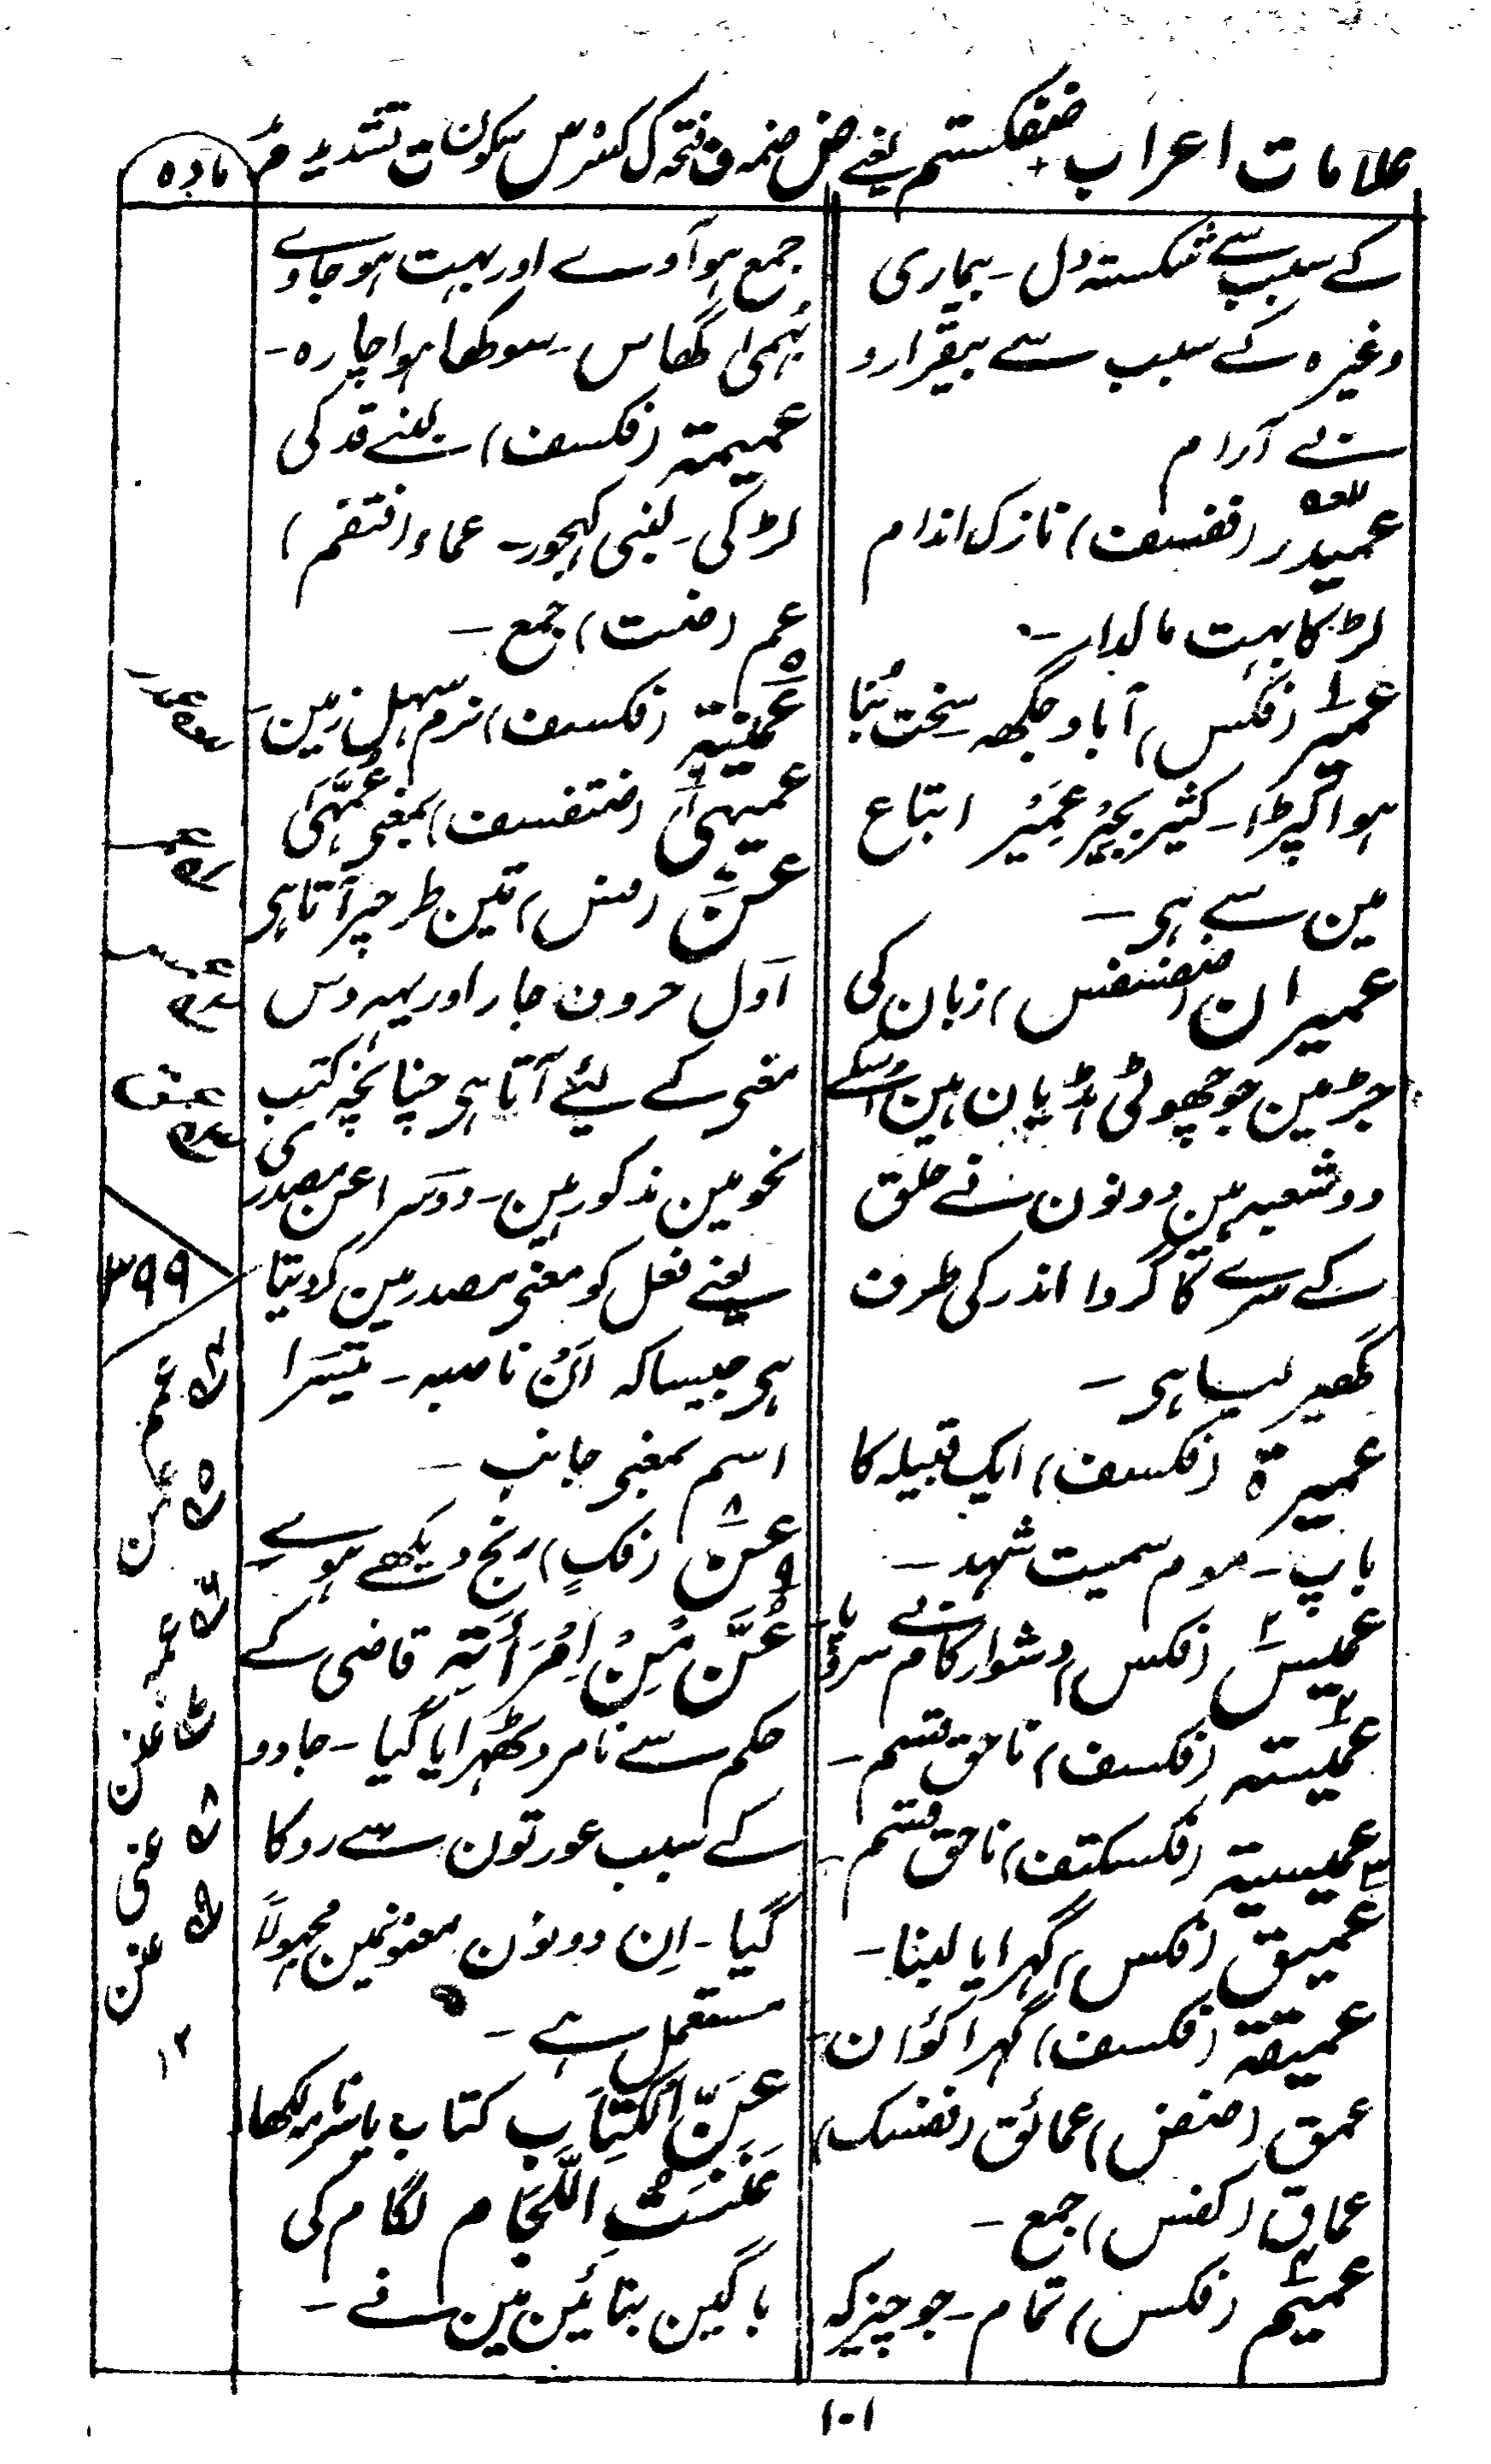 علامات اعراب ضفکستم یعنے ض ضمہ ف فتحہ ک کسرہ س سکون ت تشدید م مد
مادہ
کے سبب سے شکستہ دل - بیماری
وغیرہ کے سبب سے بیقرار و
بے آرام
عمیدر (ففسف) نازک اندام
لڑکا بہت مالدار -
عمیر (فکس) آباد جگھہ سخت بُنا
ہوا کپڑا - کثیر بجیر عمیر اتباع
مین سے ہی -
عمیران زبان کی
جڑ مین جو چھوٹی ہڈیان ہین اُسکے
دو شعبہ ہین دونون نے حلق
کے سرے کا گردا اندر کی طرف
گھیر لیا ہی -
عمیرة (فکسف) ایک قبیلہ کا
باپ - موم سمیت شہد -
عمیس (فکس) دشوار کام بے سر و پا -
عمیسة (فکسف) ناحق قسم -
عمیسیة (فکسکتف) ناحق قسم
عمیق (فکس) گہرا یا لبنا -
عمیقة (فکسف) گہرا کوُان -
عمق (ضفض) عمائق (ففسک)
عماق (کفس) جمع -
عمیم (فکس) تمام - جو چیز کہ
جمع ہو آوے اور بہت ہو جاوے
بُہمی گھاس - سوکھا ہوا چارہ -
عمیمة (فکسف) لبنے قد کی
لڑکی - لبنی کہجور - عماء (فتفم)
عم (ضت) جمع -
عمینة (فکسف) نرم سہل زمین -
عمیهیٰ (ضتفسف) بمعنی عُمَّہیٰ
عن (فس) تین طرحپر آتا ہی
اوّل حروف جار اور یہہ دس
معنی کے لیئے آتا ہی چنانچہ کتب
نحو مین مذکور ہین - دوسرا عن مصدری
یعنے فعل کو معنی مصدر مین کر دیتا
ہی جیسا کہ اَنْ ناصبہ - تیسرا
اسم بمعنی جانب -
عن (فکٍ) رنج دیکھے ہوے -
عُنَّ مِنْ اِمْرَأَتِهٖ قاضی کے
حکم سے نامرد ٹھہرایا گیا - جادو
کے سبب عورتون سے روکا
گیا - اِن دونون معنونمین مجہولاً
مستعمل ہے -
عَنَّ الْکِتَاب کتاب یا نامہ لکھا
عَنَنْتُ اللِّجَام لگام کی
باگین بنائین مین نے -
۳۹۹
عمم
عمن
عمہ
عنن
عنی
عنن
۱۲
۱۰۱